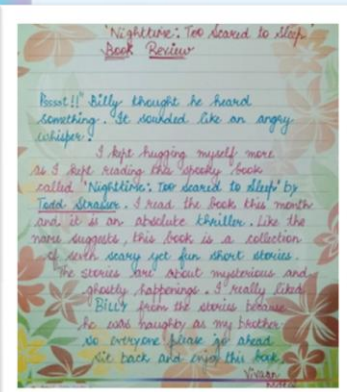 "Nighttime: Too Scared to Sleep"
Book Review
Pssst!!" Billy thought he heard
something. It sounded like an angry
whisper.
I kept hugging myself more
as I kept reading this spooky book
called "Nighttime: Too scared to sleep" by
Todd Strasser. I read the book this month
and it is an absolute thriller. Like the
name suggests, this book is a collection
of seven scary yet fun short stories.
The stories are about mysterious and
ghostly happenings. I really liked
Billy from the stories because
he was naughty as my brother.
So everyone please go ahead
sit back and enjoy this book.
Vivaan